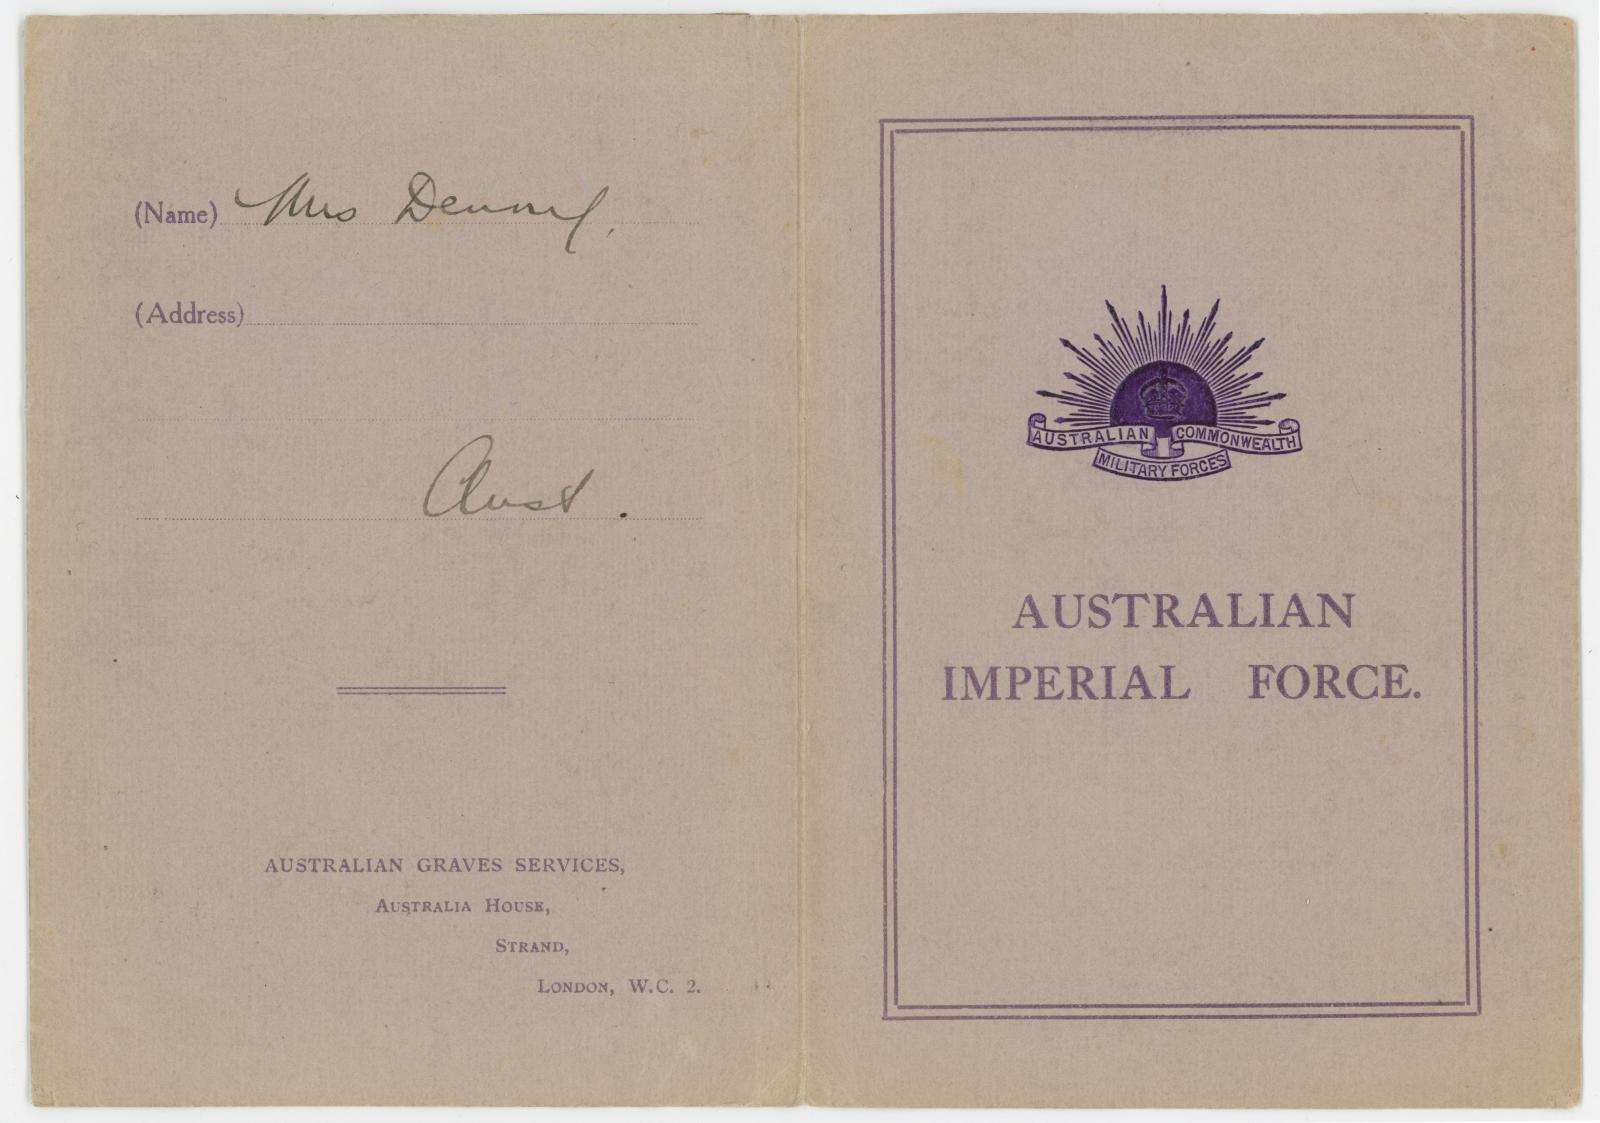 (Name) Mrs Denny.
(Address)
Aust.
AUSTRALIAN GRAVES SERVICES,
AUSTRALIA HOUSE,
STRAND,
LONDON, W.C. 2.
AUSTRALIAN COMMONWEALTH
MILITARY FORCES
AUSTRALIAN
IMPERIAL FORCE.